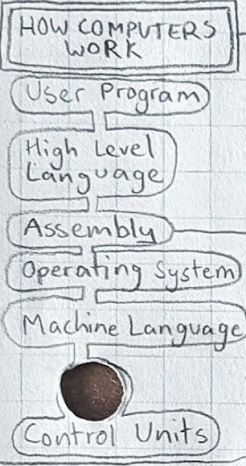 HOW COMPUTERS
WORK
User Program
High Level
Language
Assembly
Operating System
Machine Language
Control Units